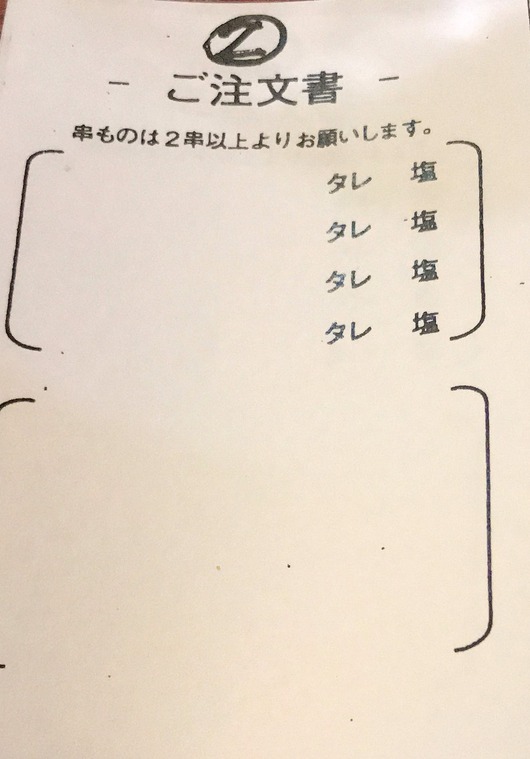 ②
- ご注文書 -
串ものは２串以上よりお願いします。
タレ 塩
タレ 塩
タレ 塩
タレ 塩